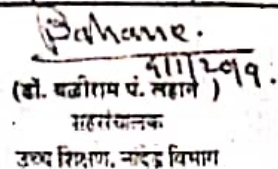 5/11/2019.
(डॉ. बळीराम पं. लहाने )
सहसंचालक
उच्च शिक्षण, नांदेड विभाग